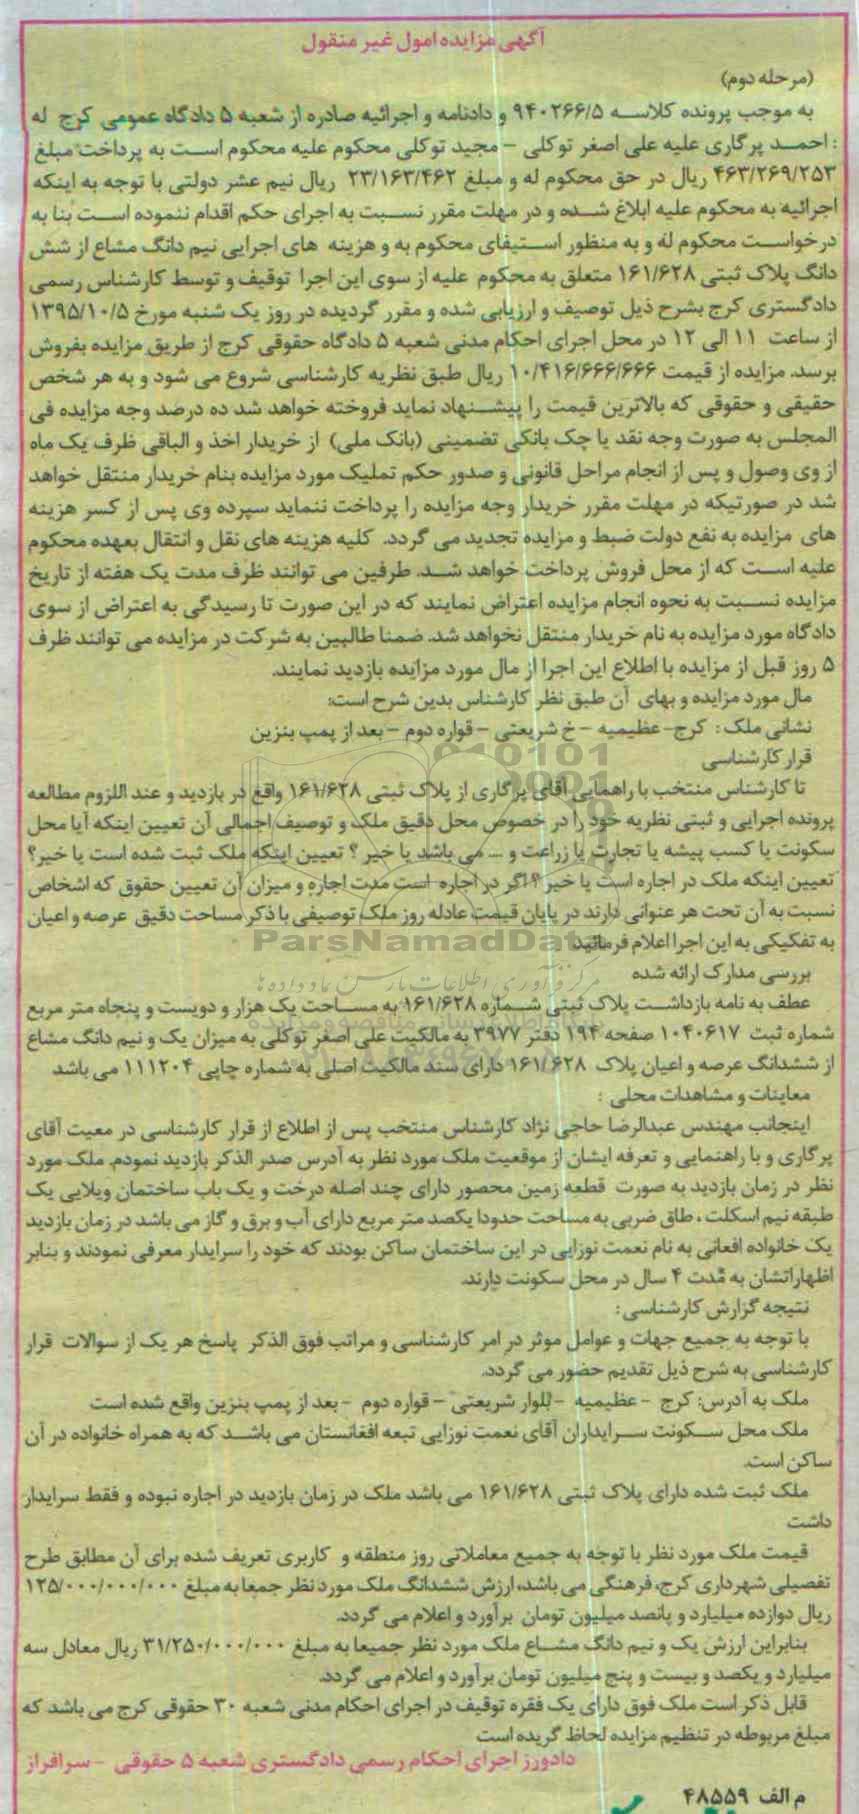 آگهی مزایده امول غیر منقول
(مرحله دوم)
به موجب پرونده کلاسه ۹۴۰۲۶۶/۵ و دادنامه و اجرائیه صادره از شعبه ۵ دادگاه عمومی کرج له
: احمد پرگاری علیه علی اصغر توکلی – مجید توکلی محکوم علیه محکوم است به پرداخت مبلغ
۴۶۳/۲۶۹/۲۵۳ ریال در حق محکوم له و مبلغ ۲۳/۱۶۳/۴۶۲ ریال نیم عشر دولتی با توجه به اینکه
اجرائیه به محکوم علیه ابلاغ شده و در مهلت مقرر نسبت به اجرای حکم اقدام ننموده است بنا به
درخواست محکوم له و به منظور استیفای محکوم به و هزینه های اجرایی نیم دانگ مشاع از شش
دانگ پلاک ثبتی ۱۶۱/۶۲۸ متعلق به محکوم علیه از سوی این اجرا توقیف و توسط کارشناس رسمی
دادگستری کرج بشرح ذیل توصیف و ارزیابی شده و مقرر گردیده در روز یک شنبه مورخ ۱۳۹۵/۱۰/۵
از ساعت ۱۱ الی ۱۲ در محل اجرای احکام مدنی شعبه ۵ دادگاه حقوقی کرج از طریق مزایده بفروش
برسد. مزایده از قیمت ۱۰/۴۱۶/۶۶۶/۶۶۶ ریال طبق نظریه کارشناسی شروع می شود و به هر شخص
حقیقی و حقوقی که بالاترین قیمت را پیشنهاد نماید فروخته خواهد شد ده درصد وجه مزایده فی
المجلس به صورت وجه نقد یا چک بانکی تضمینی (بانک ملی) از خریدار اخذ و الباقی ظرف یک ماه
از وی وصول و پس از انجام مراحل قانونی و صدور حکم تملیک مورد مزایده بنام خریدار منتقل خواهد
شد در صورتیکه در مهلت مقرر خریدار وجه مزایده را پرداخت ننماید سپرده وی پس از کسر هزینه
های مزایده به نفع دولت ضبط و مزایده تجدید می گردد. کلیه هزینه های نقل و انتقال بعهده محکوم
علیه است که از محل فروش پرداخت خواهد شد. طرفین می توانند ظرف مدت یک هفته از تاریخ
مزایده نسبت به نحوه انجام مزایده اعتراض نمایند که در این صورت تا رسیدگی به اعتراض از سوی
دادگاه مورد مزایده به نام خریدار منتقل نخواهد شد. ضمنا طالبین به شرکت در مزایده می توانند ظرف
۵ روز قبل از مزایده با اطلاع این اجرا از مال مورد مزایده بازدید نمایند.
مال مورد مزایده و بهای آن طبق نظر کارشناس بدین شرح است:
نشانی ملک : کرج- عظیمیه – خ شریعتی – قواره دوم – بعد از پمپ بنزین
قرار کارشناسی
تا کارشناس منتخب با راهنمایی آقای پرگاری از پلاک ثبتی ۱۶۱/۶۲۸ واقع در بازدید و عند اللزوم مطالعه
پرونده اجرایی و ثبتی نظریه خود را در خصوص محل دقیق ملک و توصیف اجمالی آن تعیین اینکه آیا محل
سکونت یا کسب پیشه یا تجارت یا زراعت و ... می باشد یا خیر ؟ تعیین اینکه ملک ثبت شده است یا خیر؟
تعیین اینکه ملک در اجاره است یا خیر ؟ اگر در اجاره است مدت اجاره و میزان آن تعیین حقوق که اشخاص
نسبت به آن تحت هر عنوانی دارند در پایان قیمت عادله روز ملک توصیفی با ذکر مساحت دقیق عرصه و اعیان
به تفکیکی به این اجرا اعلام فرمائید
ParsNamadData
بررسی مدارک ارائه شده
عطف به نامه بازداشت پلاک ثبتی شماره ۱۶۱/۶۲۸ به مساحت یک هزار و دویست و پنجاه متر مربع
شماره ثبت ۱۰۴۰۶۱۷ صفحه ۱۹۴ دفتر ۳۹۷۷ به مالکیت علی اصغر توکلی به میزان یک و نیم دانگ مشاع
از ششدانگ عرصه و اعیان پلاک ۱۶۱/۶۲۸ دارای سند مالکیت اصلی به شماره چاپی ۱۱۱۲۰۴ می باشد
معاینات و مشاهدات محلی :
اینجانب مهندس عبدالرضا حاجی نژاد کارشناس منتخب پس از اطلاع از قرار کارشناسی در معیت آقای
پرگاری و با راهنمایی و تعرفه ایشان از موقعیت ملک مورد نظر به آدرس صدر الذکر بازدید نمودم. ملک مورد
نظر در زمان بازدید به صورت قطعه زمین محصور دارای چند اصله درخت و یک باب ساختمان ویلایی یک
طبقه نیم اسکلت ، طاق ضربی به مساحت حدودا یکصد متر مربع دارای آب و برق و گاز می باشد در زمان بازدید
یک خانواده افغانی به نام نعمت نوزایی در این ساختمان ساکن بودند که خود را سرایدار معرفی نمودند و بنابر
اظهاراتشان به مدت ۴ سال در محل سکونت دارند.
نتیجه گزارش کارشناسی :
با توجه به جمیع جهات و عوامل موثر در امر کارشناسی و مراتب فوق الذکر پاسخ هر یک از سوالات قرار
کارشناسی به شرح ذیل تقدیم حضور می گردد.
ملک به آدرس: کرج – عظیمیه – بلوار شریعتی – قواره دوم – بعد از پمپ بنزین واقع شده است
ملک محل سکونت سرایداران آقای نعمت نوزایی تبعه افغانستان می باشد که به همراه خانواده در آن
ساکن است.
ملک ثبت شده دارای پلاک ثبتی ۱۶۱/۶۲۸ می باشد ملک در زمان بازدید در اجاره نبوده و فقط سرایدار
داشت
قیمت ملک مورد نظر با توجه به جمیع معاملاتی روز منطقه و کاربری تعریف شده برای آن مطابق طرح
تفصیلی شهرداری کرج، فرهنگی می باشد، ارزش ششدانگ ملک مورد نظر جمعا به مبلغ ۱۲۵/۰۰۰/۰۰۰/۰۰۰
ریال دوازده میلیارد و پانصد میلیون تومان برآورد و اعلام می گردد.
بنابراین ارزش یک و نیم دانگ مشاع ملک مورد نظر جمیعا به مبلغ ۳۱/۲۵۰/۰۰۰/۰۰۰ ریال معادل سه
میلیارد و یکصد و بیست و پنج میلیون تومان برآورد و اعلام می گردد.
قابل ذکر است ملک فوق دارای یک فقره توقیف در اجرای احکام مدنی شعبه ۳۰ حقوقی کرج می باشد که
مبلغ مربوطه در تنظیم مزایده لحاظ گریده است
دادورز اجرای احکام رسمی دادگستری شعبه ۵ حقوقی – سرافراز
م الف ۴۸۵۵۹